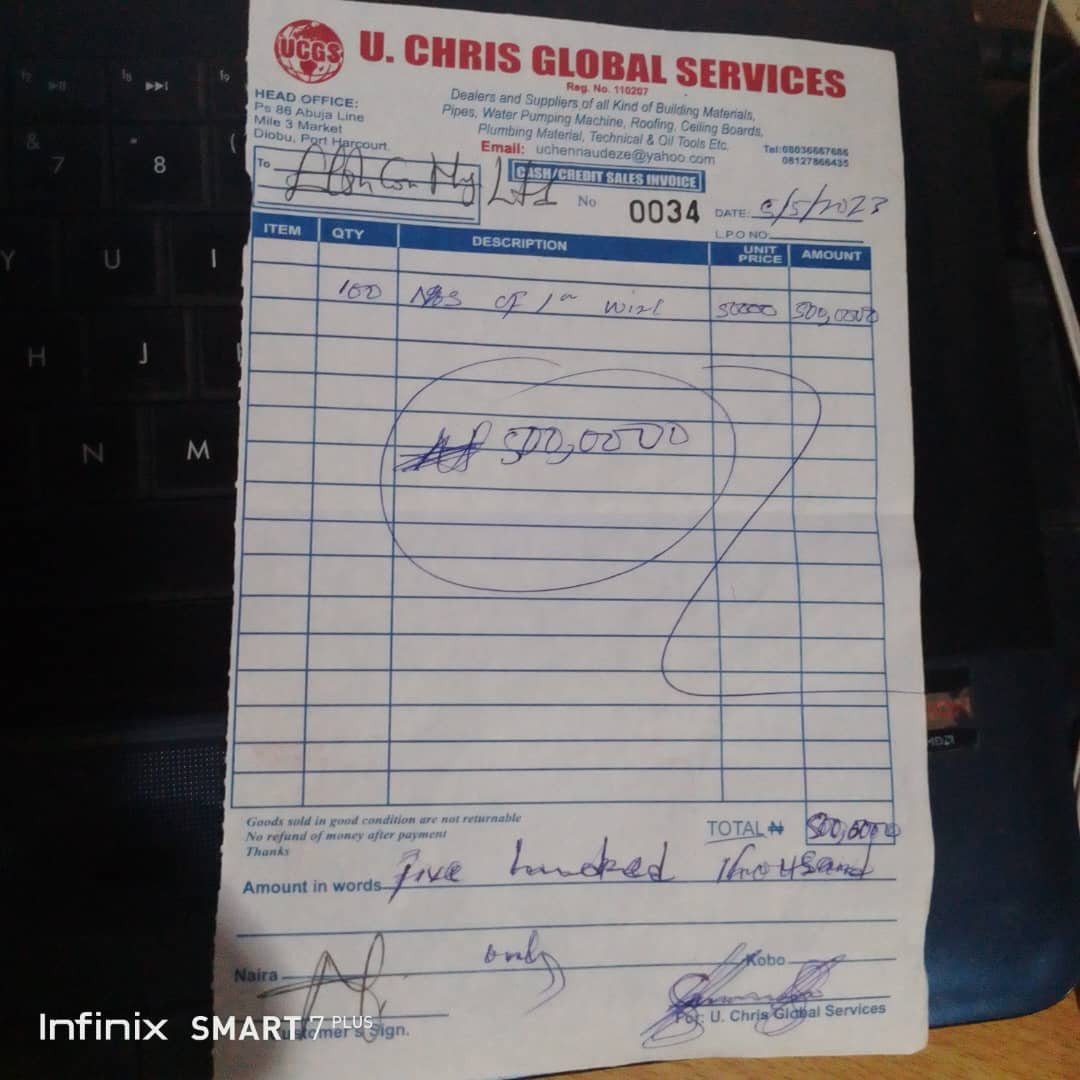 UCGS U. CHRIS GLOBAL SERVICES
Reg. No. 110207
HEAD OFFICE:
Ps 86 Abuja Line
Mile 3 Market
Diobu, Port Harcourt.
Dealers and Suppliers of all Kind of Building Materials,
Pipes, Water Pumping Machine, Roofing, Ceiling Boards,
Plumbing Material, Technical & Oil Tools Etc.
Email: uchennaudeze@yahoo.com
Tel:08036667686
08127866435
To
CASH/CREDIT SALES INVOICE
No 0034
DATE: 5/5/2023
L.P.O NO:
ITEM QTY DESCRIPTION UNIT PRICE AMOUNT
100 of 1"
Goods sold in good condition are not returnable
No refund of money after payment
Thanks
TOTAL ₦
Amount in words Five hundred Thousand
only
Naira
Kobo
Customer's Sign.
For: U. Chris Global Services
Infinix SMART 7 PLUS
f2 f8 f9
& 7 * 8 (
Y U I
H J
N M
AMD